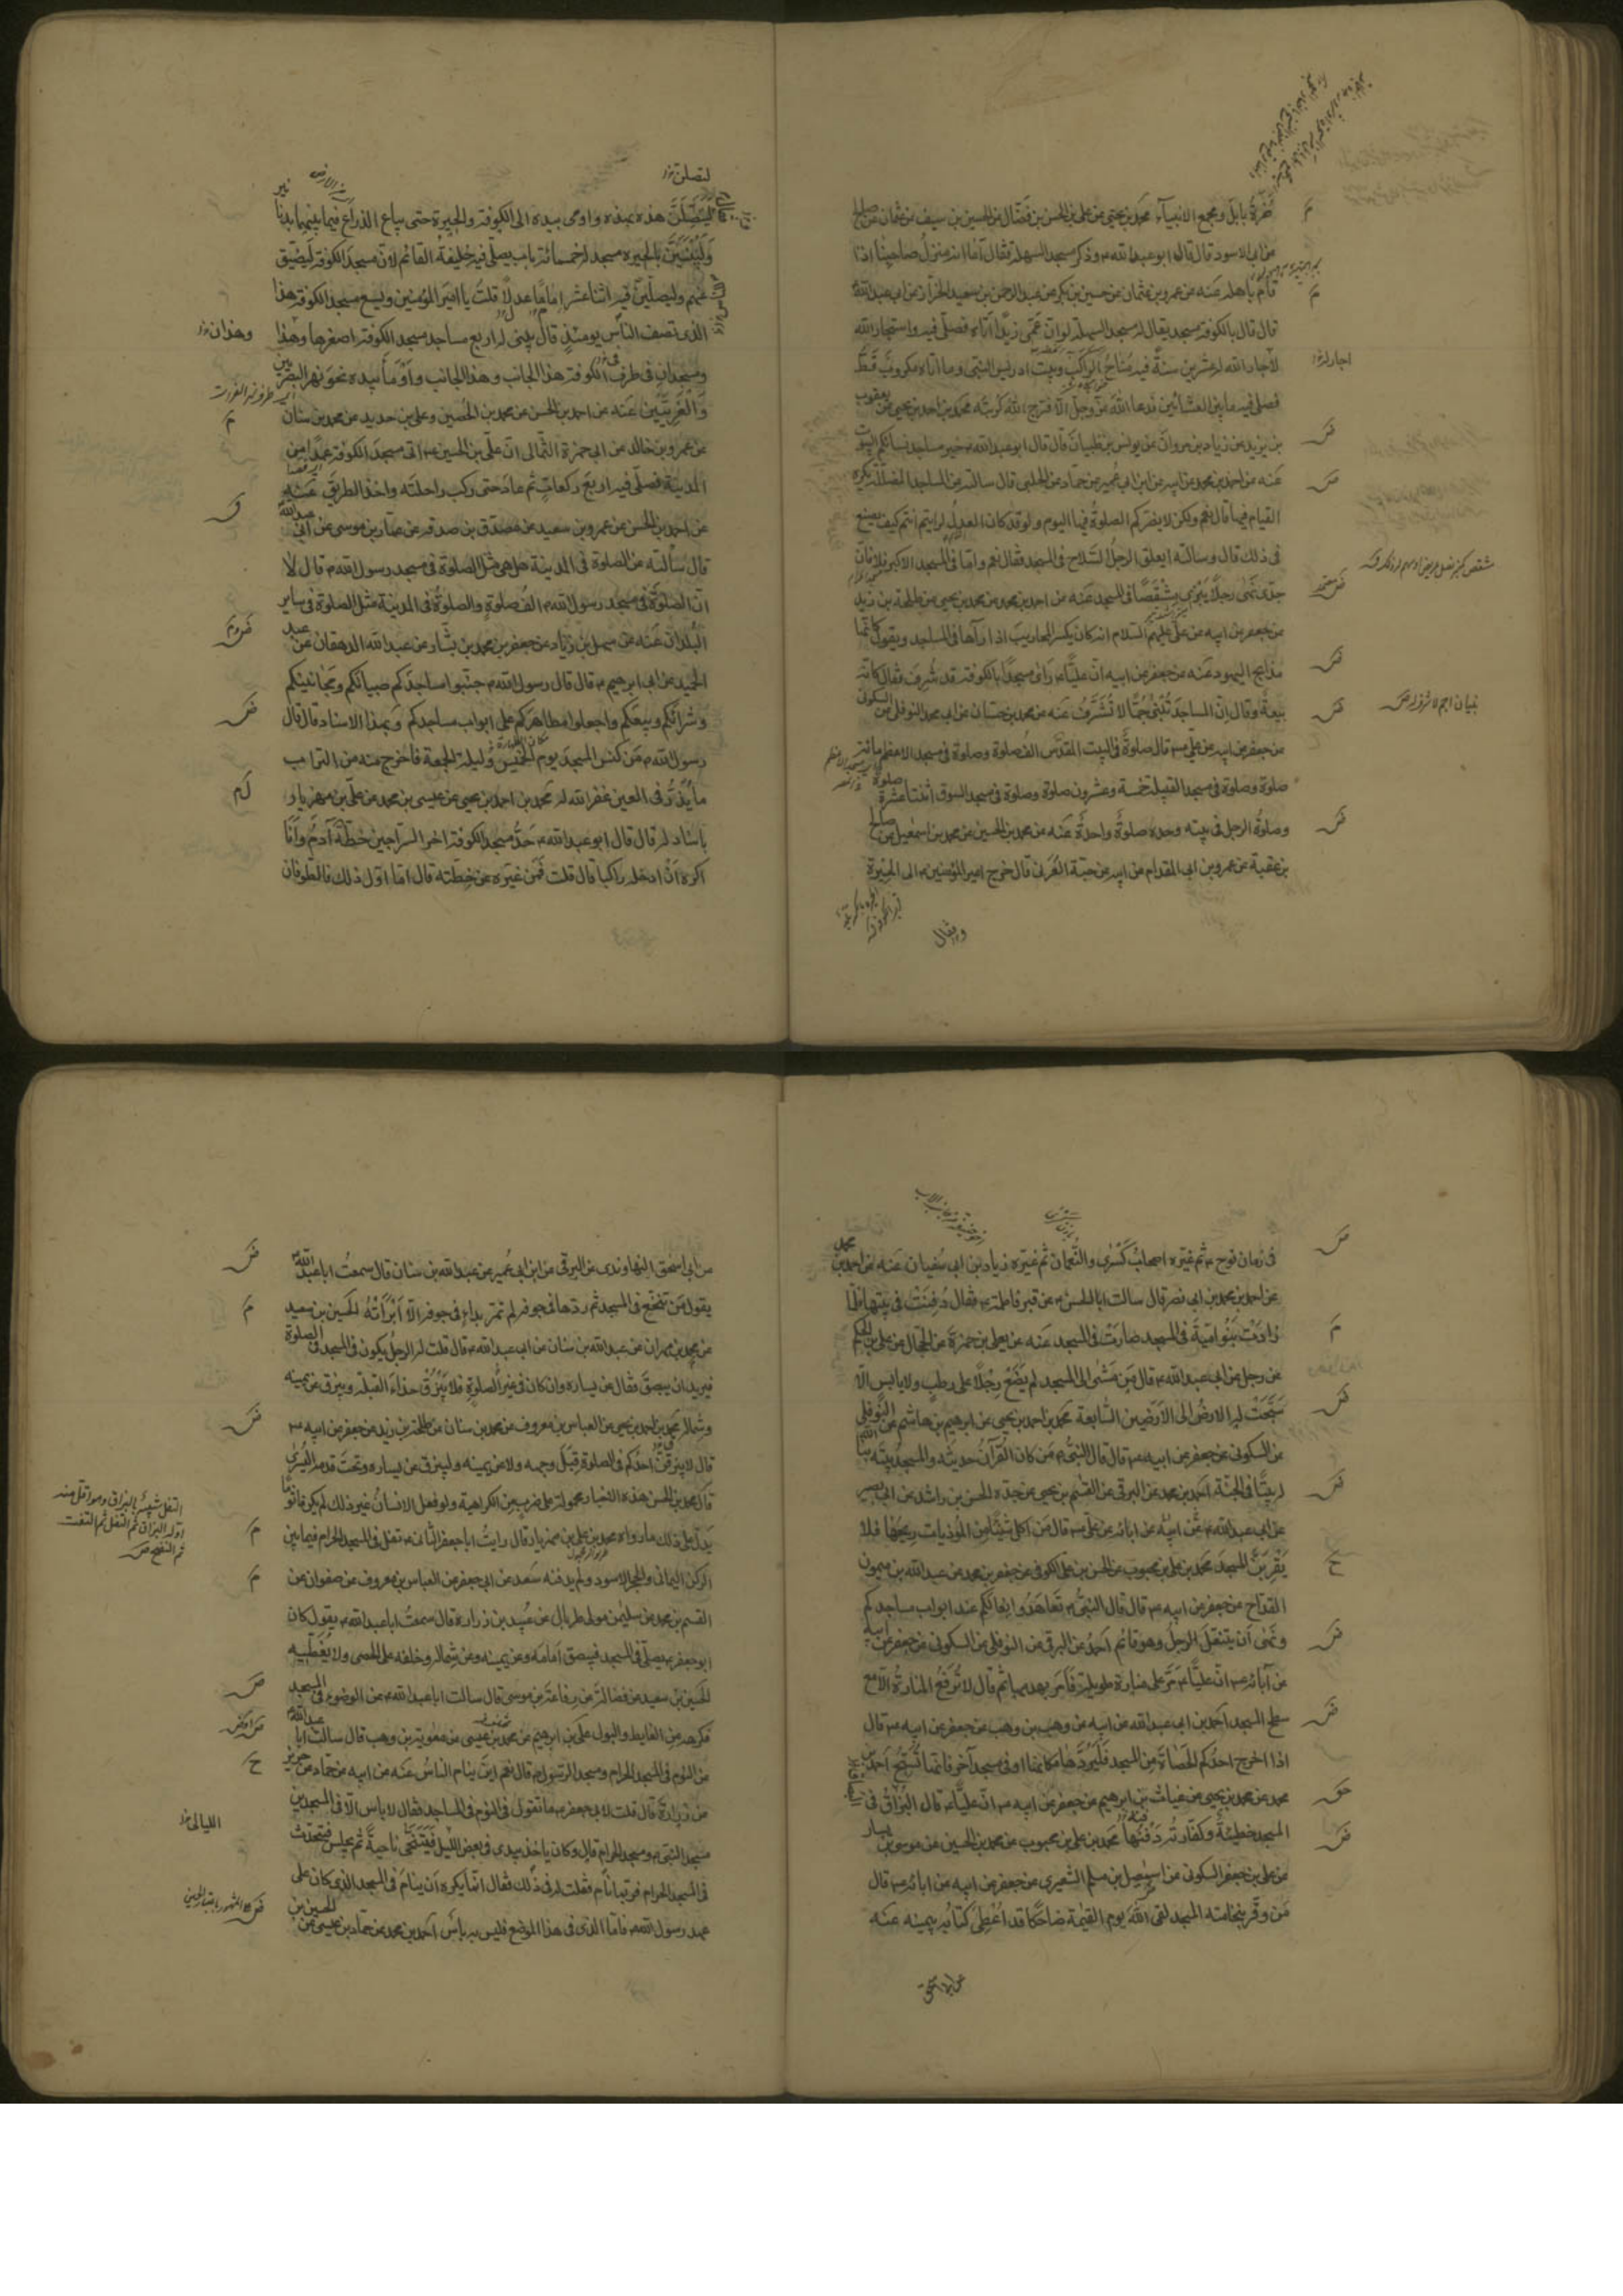 سرة بابل ومجمع الانبياء محمد بن يحيى عن على بن الحسن بن فضال عن الحسين بن سيف عن عثمان عن صالح
بن ابى الاسود قال قال ابو عبد الله ع وذكر مسجد السهلة فقال اما انه منزل صاحبنا اذا
قام باهله عنه عن عمرو بن عثمان عن حسين بن بكر عن عبد الرحمن بن سعيد الخزاز عن ابى عبد الله
قال قال بالكوفة مسجد يقال له مسجد السهلة لو ان عمى زيدا اتاه فصلى فيه واستجار الله
لاجاره الله له عشرين سنة فيه مناخ الراكب وبيت ادريس النبى وما اتاه مكروب قط
فصلى فيه ما بين العشائين فدعا الله عز وجل الا فرج الله كربته محمد بن احمد بن يحيى عن يعقوب
بن يزيد عن زياد بن مروان عن يونس بن ظبيان قال قال ابو عبد الله ع خير مساجد نسائكم البيوت
عنه عن احمد بن محمد عن ابيه عن ابن ابى عمير عن حماد عن الحلبى قال سالته عن المساجد المظللة يكره
القيام فيها قال نعم ولكن لا يضركم الصلوة فيها اليوم ولو قد كان العدل لرايتم انتم كيف يصنع
فى ذلك قال وسالته ايعلق الرجل السلاح فى المسجد فقال نعم واما فى المسجد الاكبر فلا فان
جدى نهى رجلا يبرى مشقصا فى المسجد عنه عن احمد بن محمد عن محمد بن يحيى عن طلحة بن زيد
عن جعفر عن ابيه عن على عليهم السلام انه كان يكسر المحاريب اذا رآها فى المساجد ويقول كانها
مذابح اليهود عنه عن جعفر عن ابيه ان عليا ع راى مسجدا بالكوفة قد شرف فقال كانه
بيعة وقال ان المساجد تبنى جما لا تشرف عنه عن محمد بن حسان عن ابى محمد النوفلى عن السكونى
عن جعفر عن ابيه عن على ع قال صلوة فى البيت المقدس الف صلوة وصلوة فى مسجد الاعظم مائة
صلوة وصلوة فى مسجد القبيلة خمسة وعشرون صلوة وصلوة فى مسجد السوق اثنتا عشرة صلوة
وصلوة الرجل فى بيته وحده صلوة واحدة عنه عن محمد بن الحسين عن محمد بن اسمعيل عن صالح
بن عقبة عن عمرو بن ابى المقدام عن ابيه عن حبة العرنى قال خرج امير المؤمنين ع الى الحيرة
لتصلن
ليتصلن هذه بهذه واومى بيده الى الكوفة والحيرة حتى يباع الذراع فيما بينهما بدنا نير
وليبنين بالحيرة مسجد له خمسمائة باب يصلى فيه خليفة القائم لان مسجد الكوفة ليضيق
عنهم وليصلين فيه اثنا عشر اماما عدلا قلت يا امير المؤمنين ويسع مسجد الكوفة هذا
الذى تصف الناس يومئذ قال يبنى له اربع مساجد مسجد الكوفة اصغرها وهذا
وهذان
ومسجدان فى طرفى الكوفة هذا الجانب وهذا الجانب واومأ بيده نحو نهر البصريين
والغريين عنه عن احمد بن الحسن عن محمد بن الحصين وعلى بن حديد عن محمد بن سنان
عن عمرو بن خالد عن ابى حمزة الثمالى ان على بن الحسين ع اتى مسجد الكوفة عمدا من
المدينة فصلى فيه اربع ركعات ثم عاد حتى ركب راحلته واخذ الطريق عنه
عن احمد بن الحسن عن عمرو بن سعيد عن مصدق بن صدقة عن عمار بن موسى عن ابى عبد الله
قال سألته عن الصلوة فى المدينة هل هى مثل الصلوة فى مسجد رسول الله ص قال لا
ان الصلوة فى مسجد رسول الله ص الف صلوة والصلوة فى المدينة مثل الصلوة فى ساير
البلدان عنه عن سهل بن زياد عن جعفر بن محمد بن بشار عن عبد الله الدهقان عن عبد
الحميد عن ابى ابرهيم ع قال قال رسول الله ص جنبوا مساجدكم صبيانكم ومجانينكم
وشرائكم وبيعكم واجعلوا مطاهركم على ابواب مساجدكم وبهذا الاسناد قال قال
رسول الله ص من كنس المسجد يوم الخميس وليلة الجمعة فاخرج منه من التراب
ما يذر فى العين غفر الله له محمد بن احمد بن يحيى عن عيسى بن محمد عن على بن مهزيار
باسناد له قال قال ابو عبد الله ع حد مسجد الكوفة اخر السراجين خطه آدم وانا
اكره ان ادخله راكبا قال قلت فمن غيره عن خطته قال اما اول ذلك فالطوفان
فى زمان نوح ع ثم غيره اصحاب كسرى والنعمان ثم غيره زياد بن ابى سفيان عنه عن احمد بن محمد
عن احمد بن محمد بن ابى نصر قال سالت ابا الحسن ع عن قبر فاطمة ع فقال دفنت فى بيتها فلما
زادت بنو امية فى المسجد صارت فى المسجد عنه عن يعلى بن حمزة عن الحجال عن على بن الحكم
عن رجل عن ابى عبد الله ع قال من مشى الى المسجد لم يضع رجلا على رطب ولا يابس الا
سبحت له الارض الى الارضين السابعة محمد بن احمد بن يحيى عن ابرهيم بن هاشم عن النوفلى
عن السكونى عن جعفر عن ابيه ع قال قال النبى ص من كان القرآن حديثه والمسجد بيته بنى الله
له بيتا فى الجنة احمد بن محمد عن البرقى عن القسم بن يحيى عن جده الحسن بن راشد عن ابى بصير
عن ابى عبد الله ع عن ابيه عن ابائه عن على ع قال من اكل شيئا من المؤذيات ريحها فلا
يقربن المسجد محمد بن على بن محبوب عن الحسن بن على الكوفى عن جعفر بن محمد عن عبد الله بن ميمون
القداح عن جعفر عن ابيه ع قال قال النبى ص تعاهدوا نعالكم عند ابواب مساجدكم
ونهى ان يتنعل الرجل وهو قائم احمد عن البرقى عن النوفلى عن السكونى عن جعفر عن ابيه
عن آبائه ع ان عليا ع مر على منارة طويلة فامر بهدمها ثم قال لا ترفع المنارة الا مع
سطح المسجد احمد بن ابى عبد الله عن ابيه عن وهب بن وهب عن جعفر عن ابيه ع قال
اذا اخرج احدكم الحصاة من المسجد فليردها مكانها او فى مسجد آخر فانها تسبح احمد بن
محمد عن محمد بن يحيى عن غياث بن ابرهيم عن جعفر عن ابيه ع ان عليا ع قال البزاق فى
المسجد خطيئة وكفارته دفنها محمد بن على بن محبوب عن محمد بن الحسين عن موسى بن يسار
عن على بن جعفر السكونى عن اسمعيل بن مسلم الشعيرى عن جعفر عن ابيه عن ابائه ع قال
من وقر بنخامته المسجد لقى الله يوم القيمة ضاحكا قد اعطى كتابه بيمينه عنه
عن ابى اسحق النهاوندى عن البرقى عن ابن ابى عمير عن عبد الله بن سنان قال سمعت ابا عبد الله
يقول من تنخع فى المسجد ثم ردها فى جوفه لم تمر بداء فى جوفه الا ابرأته الحسين بن سعيد
عن محمد بن مهران عن عبد الله بن سنان عن ابى عبد الله ع قال قلت له الرجل يكون فى المسجد فى الصلوة
فيريد ان يبصق فقال عن يساره وان كان فى غير الصلوة فلا يبزق حذاء القبلة ويبزق عن يمينه
وشماله محمد بن احمد بن يحيى عن العباس بن معروف عن محمد بن سنان عن طلحة بن زيد عن جعفر عن ابيه ع
قال لا يبزقن احدكم فى الصلوة قبل وجهه ولا عن يمينه وليبزق عن يساره وتحت قدمه اليسرى
قال محمد بن الحسن هذه الاخبار محمولة على ضرب من الكراهية ولو فعل الانسان غير ذلك لم يكن مأثوما
يدل على ذلك ما رواه محمد بن على بن مهزيار قال رايت ابا جعفر الثانى ع تفل فى المسجد الحرام فيما بين
التفل شبيه بالبزاق وهو اقل منه
اوله البزاق ثم التفل ثم النفث
ثم النفخ
الركن اليمانى والحجر الاسود ولم يدفنه سعد عن ابى جعفر عن العباس بن معروف عن صفوان عن
القسم بن محمد عن سليمن مولى طربال عن عبيد بن زرارة قال سمعت ابا عبد الله ع يقول كان
ابو جعفر ع يصلى فى المسجد فيبصق امامه وعن يمينه وعن شماله وخلفه على الحصى ولا يغطيه
الحسين بن سعيد عن فضالة عن رفاعة بن موسى قال سالت ابا عبد الله ع عن الوضوء فى المسجد
فكرهه من الغايط والبول على بن ابرهيم عن محمد بن عيسى عن معوية بن وهب قال سالت ابا عبد الله
عن النوم فى المسجد الحرام ومسجد الرسول ص قال نعم اين ينام الناس عنه عن ابيه عن حماد عن حريز
عن زرارة قال قلت لابى جعفر ع ما تقول فى النوم فى المساجد فقال لا باس الا فى المسجدين
مسجد النبى ص ومسجد الحرام قال وكان ياخذ بيدى فى بعض الليل فيتنحى ناحية ثم يجلس فيتحدث
فى المسجد الحرام فربما نام فقلت له فى ذلك فقال انما يكره ان ينام فى المسجد الذى كان على
عهد رسول الله ص فاما الذى فى هذا الموضع فليس به باس احمد بن محمد عن حماد بن عيسى عن الحسين بن